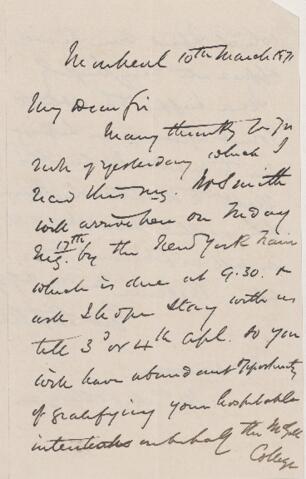 Montreal 10th March 1871
My Dear Sir
Many thanks for yr
note of yesterday which I
read this mg. Mr Smith
will arrive here on Friday
17th
mg. by the New York train
which is due at 9.30. &
will I hope stay with us
till 3d or 4th Apl. so you
will have abundant opportunity
of gratifying your hospitable
intentions on behalf the McGill
College